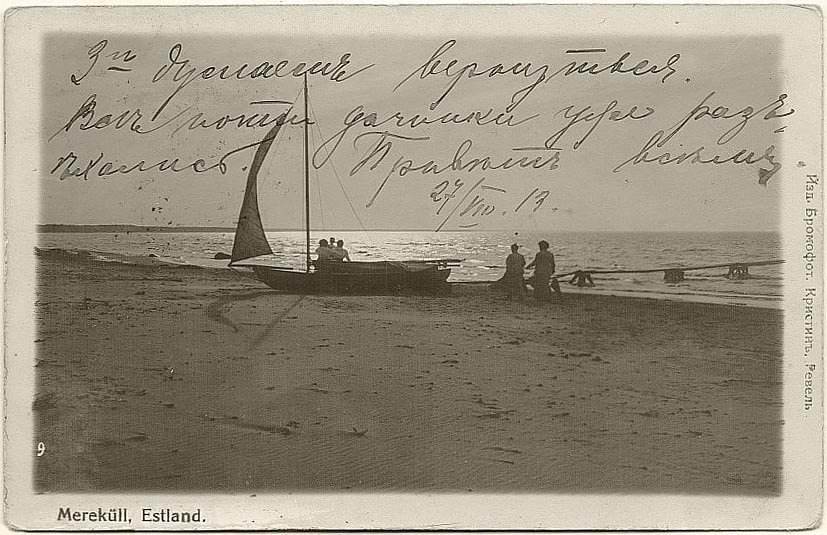 3го думаемъ вернуться.
Всѣ почти дачники уже разъ-
ѣхались. Привѣтъ всѣмъ
27/VIII. 13.
Изд. Бромофот. Кристинъ, Ревель
9
Mereküll, Estland.